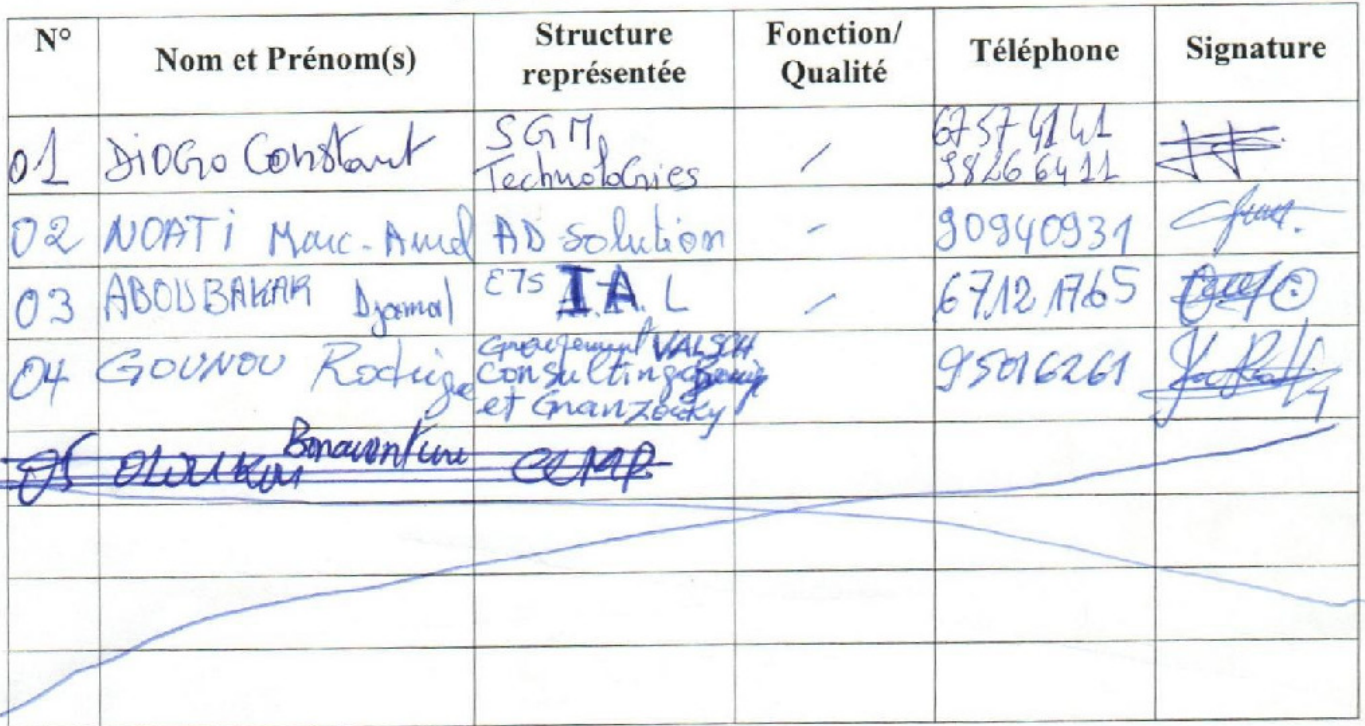 N° Nom et Prénom(s) Structure représentée Fonction/ Qualité Téléphone Signature
01 DIOGO Constant SGM Technologies / 67574141 98266411
02 NOATI Marc- AD Solution / 90940931
03 ABOUBAKAR Djamal ETS I.A.L / 67121765
04 GOUNOU Rodrigue Groupement VALSCH Consulting et 95016261
05 Bonaventure